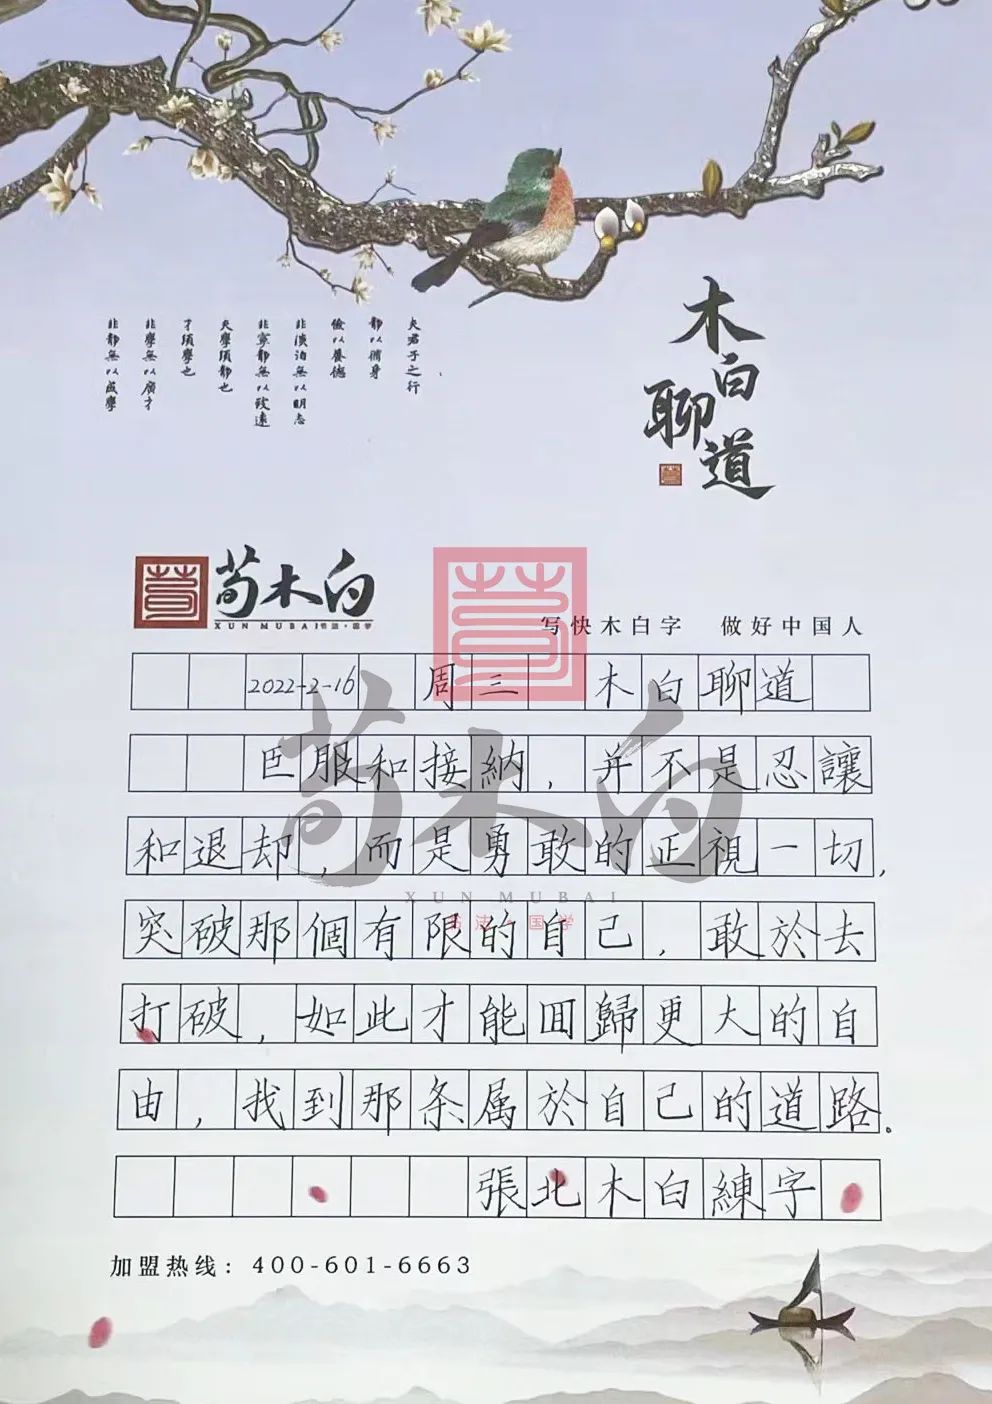 夫君子之行
靜以脩身
儉以養德
非淡泊無以明志
非寧靜無以致遠
夫學須靜也
才須學也
非學無以廣才
非靜無以成學
木白聊道
荀木白
XUN MUBAI 书法·国学
写快木白字 做好中国人
2022-2-16 周三 木白聊道
臣服和接納，并不是忍讓
和退却，而是勇敢的正視一切，
突破那個有限的自己，敢於去
打破，如此才能回歸更大的自
由，找到那条属於自己的道路。
張北木白練字
荀木白
XUN MUBAI
书法·国学
加盟热线：400-601-6663